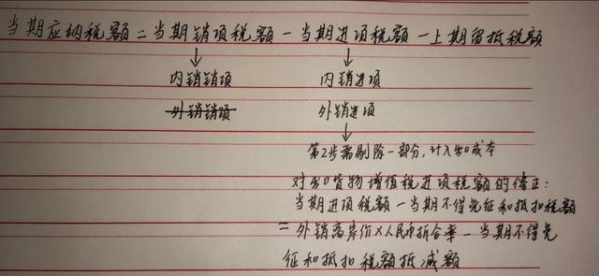 当期应纳税额=当期销项税额-当期进项税额-上期留抵税额
↓ ↓
内销销项 内销进项
外销销项 外销进项
↓
第2步需剔除一部分,计入出口成本
对出口货物增值税进项税额的修正:
当期进项税额-当期不得免征和抵扣税额
=外销离岸价×人民币折合率-当期不得免
征和抵扣税额抵减额